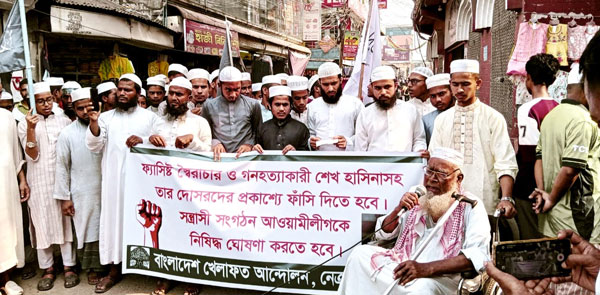 ফ্যাসিষ্ট স্বৈরাচার ও গনহত্যাকারী শেখ হাসিনাসহ
তার দোসরদের প্রকাশ্যে ফাঁসি দিতে হবে।
সন্ত্রাসী সংগঠন আওয়ামীলীগকে
নিষিদ্ধ ঘোষণা করতে হবে।
বাংলাদেশ খেলাফত আন্দোলন, নেত্র